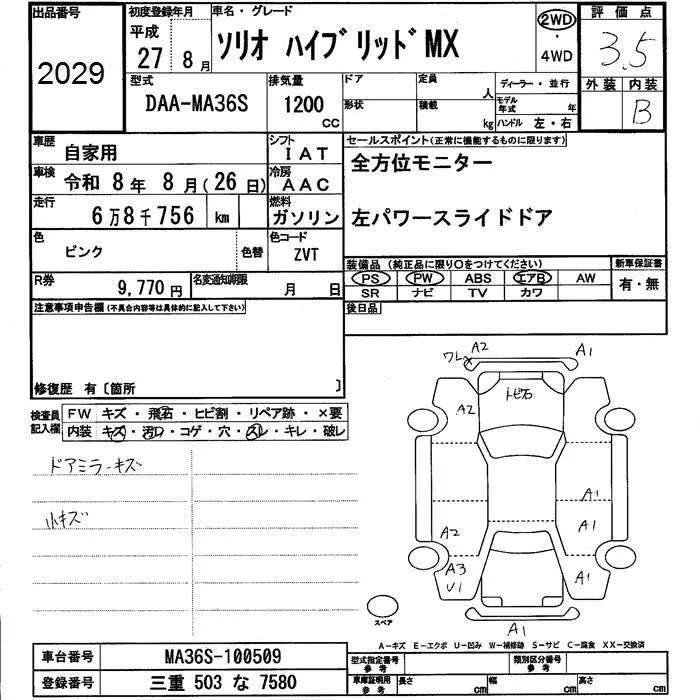 出品番号 初度登録年月 車名・グレード 2WD 評価点
2029 平成 27年 8月 ソリオ ハイブリッドMX ・ 4WD 3.5
型式 排気量 ドア 定員 人 ディーラー・並行 外装 内装
DAA-MA36S 1200 CC 形状 積載 kg モデル年式 年 ハンドル 左・右 B
車歴 自家用 シフト IAT セールスポイント(正常に機能するものに限ります)
車検 令和 8年 8月(26日) 冷房 AAC 全方位モニター
走行 6万8千756 km 燃料 ガソリン 左パワースライドドア
色 ピンク 色替 色コード ZVT
装備品 (純正品に限り〇をつけてください) 新車保証書
R券 9,770円 名変通知期限 月 日 PS PW ABS エアB AW 有・無
SR ナビ TV カワ
注意事項申告欄(不具合内容等は具体的に記入して下さい) 後日品
修復歴 有〔箇所 〕
検査員記入欄 FW キズ・飛石・ヒビ割・リペア跡・×要
内装 キズ・汚レ・コゲ・穴・スレ・キレ・破レ
ドアミラーキズ
小キズ
ワレ A2 A1
トビ石
A2
A1
A2 A1
A3 A1
U1
A1
スペア
A-キズ E-エクボ U-凹み W-補修跡 S-サビ C-腐食 XX-交換済
車台番号 MA36S-100509 型式指定番号 参考 類別区分番号 参考
登録番号 三重 503 な 7580 車庫証明用 参考 長さ cm 幅 cm 高さ cm